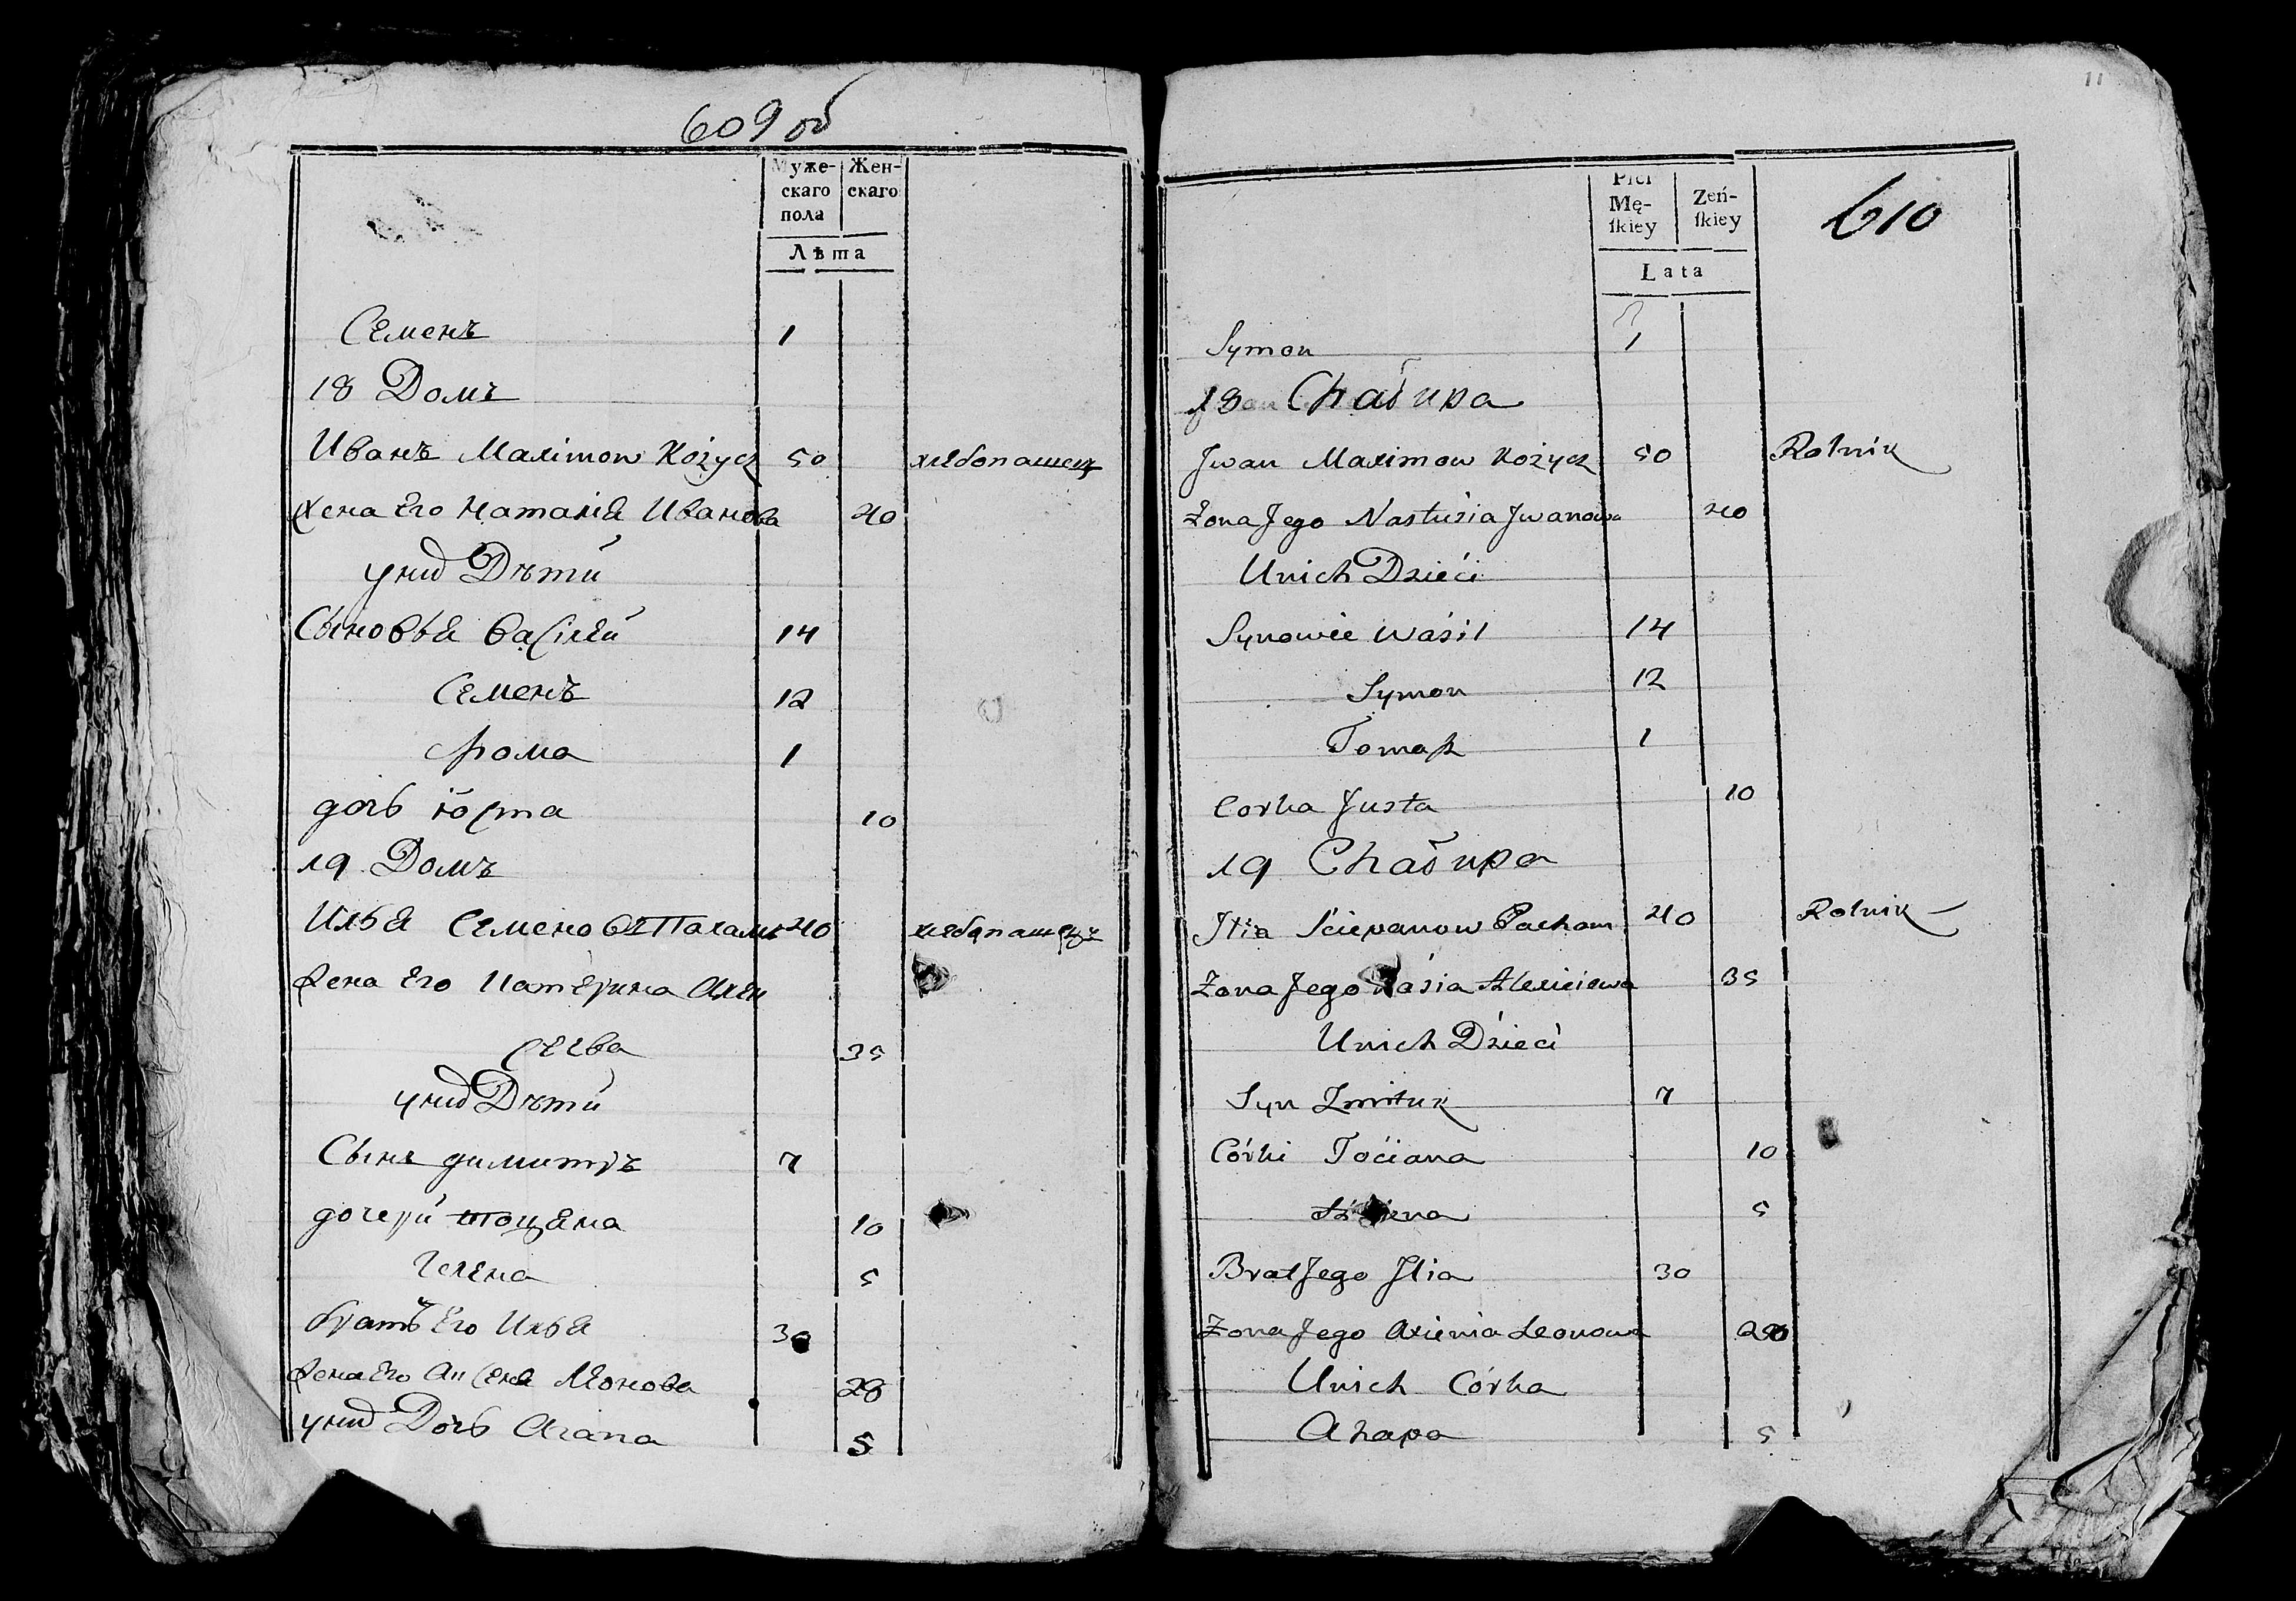 609 об
Муже-
скаго
пола
Жен-
скаго
Лѣта
Семенъ 1
18 Домъ
Иванъ Maximow Kożycz 50 хлебопашец
жена Его Наталiя Иванова 40
у них Дѣти
Сыновья Васiлей 14
Семенъ 12
Фома 1
дочь юста 10
19 Домъ
Илья Семеновъ Пахамъ 40 хлебопашецъ
жена Его Катерина Алек
сеева 35
у них Дѣти
Сынъ димитръ 7
дочери тоцяна 10
Гелена 5
братъ Его Илья 30
жена Его Аксеня Леонова 28
у них Дочь Агапа 5
11
610
Płci
Mę-
ſkiey
Zeń-
ſkiey
Lata
Symon 1
18 Chałupa
Jwan Maximow Kożycz 50 Rolnik
Żona Jego Nastusia Jwanowa 40
Unich Dzieci
Synowie Wasil 14
Symon 12
Tomasz 1
Corka Justa 10
19 Chałupa
Jlia Sciepanow Pacham 40 Rolnik
Żona Jego Kasia Alexieiewa 35
Unich Dzieci
Syn Zmituk 7
Córki Taciana 10
5
Brat Jego Jlia 30
Żona Jego Axienia Leonowa 28
Unich Córka
Ahapa 5